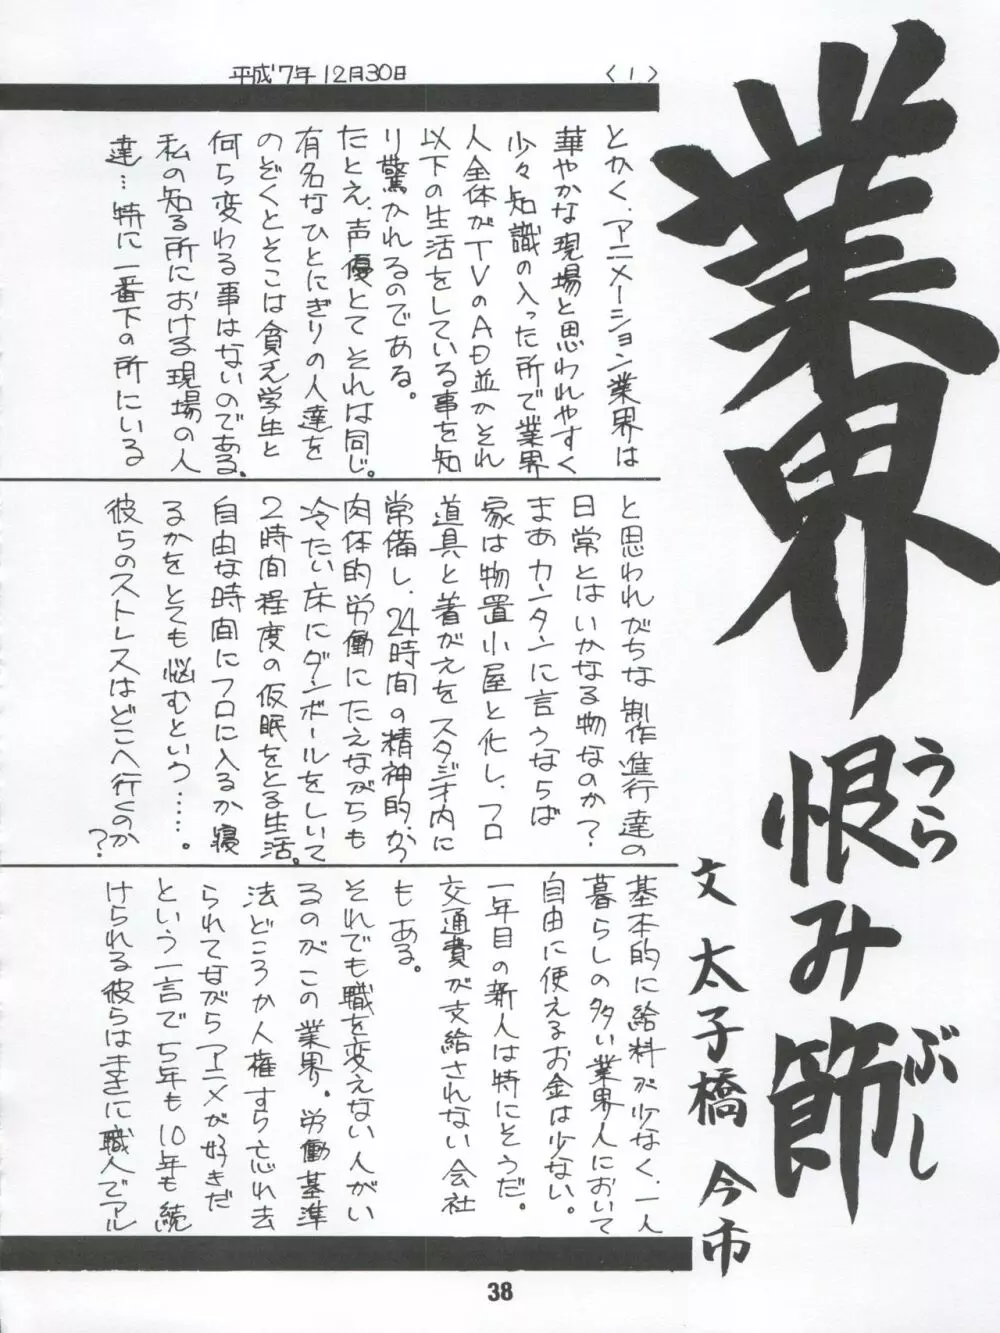 業界
恨み節
うら
ぶし
文 太子橋 今市
平成'7年12月30日
〈1〉
とかく、アニメーション業界は
華やかな現場と思われやすく
少々知識の入った所で業界
人全体がTVのAD並かそれ
以下の生活をしている事を知
り驚かれるのである。
たとえ、声優とてそれは同じ。
有名なひとにぎりの人達を
のぞくとそこは貧乏学生と
何ら変わる事はないのである。
私の知る所における現場の人
達…特に一番下の所にいる
と思われがちな制作進行達の
日常とはいかなる物なのか?
まあカンタンに言うならば
家は物置小屋と化し、フロ
道具と着がえをスタジオ内に
常備し、24時間の精神的かつ
肉体的労働にたえながらも
冷たい床にダンボールをしいて
2時間程度の仮眠をとる生活。
自由な時間にフロに入るか寝
るかをとても悩むという……。
彼らのストレスはどこへ行くのか
?
基本的に給料が少なく、一人
暮らしの多い業界人において
自由に使えるお金は少ない。
一年目の新人は特にそうだ。
交通費が支給されない会社
もある。
それでも職を変えない人がい
るのがこの業界。労働基準
法どころか人権すら忘れ去
られてながらアニメが好きだ
という一言で5年も10年も続
けられる彼らはまさに職人でアル
38